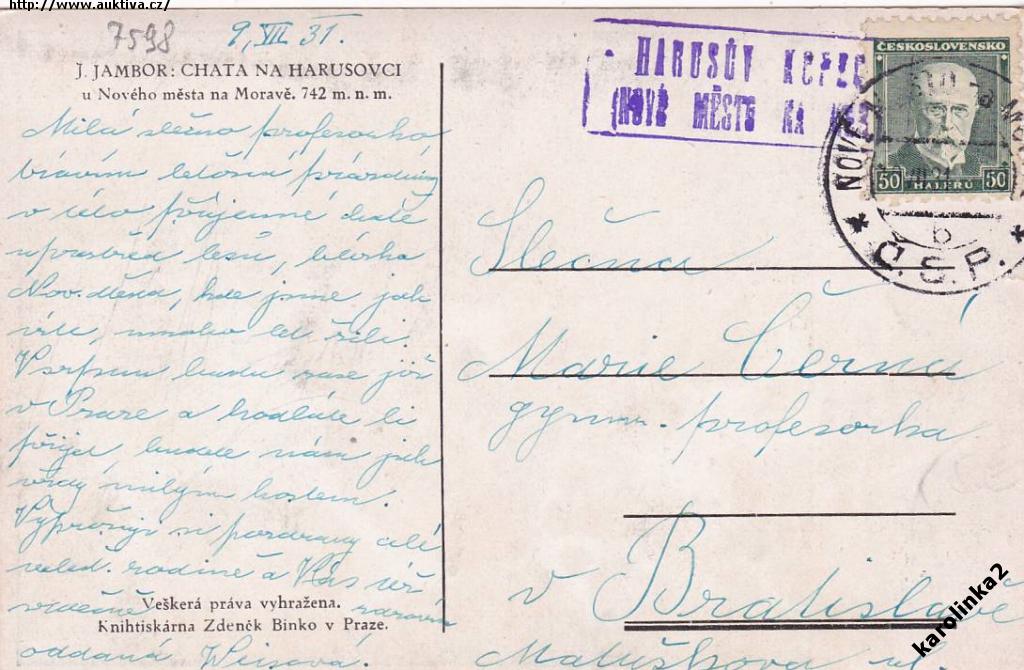 http://www.auktiva.cz/
7598
9, VII 31.
J. JAMBOR: CHATA NA HARUSOVCI
u Nového města na Moravě. 742 m. n. m.
Milá slečno profesorko,
trávím letošní prázdniny
v této příjemné chatě
uprostřed lesů, blízko
Nov. Města, kde jsme jak
víte, mnoho let žili.
V srpnu budu zase již
v Praze a hodláte li
přijet budete nám jak
vždy milým hostem.
si pozdravy celé
rodině a Vás též
srdečně zdraví
Veškerá práva vyhražena.
Knihtiskárna Zdeněk Binko v Praze.
oddaná Weisová.
HARUSŮV KOPEC
(NOVÉ MĚSTO NA MOR
ČESKOSLOVENSKO
50 HALÉŘŮ 50
NOVÉ MĚSTO NA MOR
b
Č.S.P.
Slečna
Marie Černá
gymn. profesorka
v Bratislavě
Matuškova ul
karolinka2